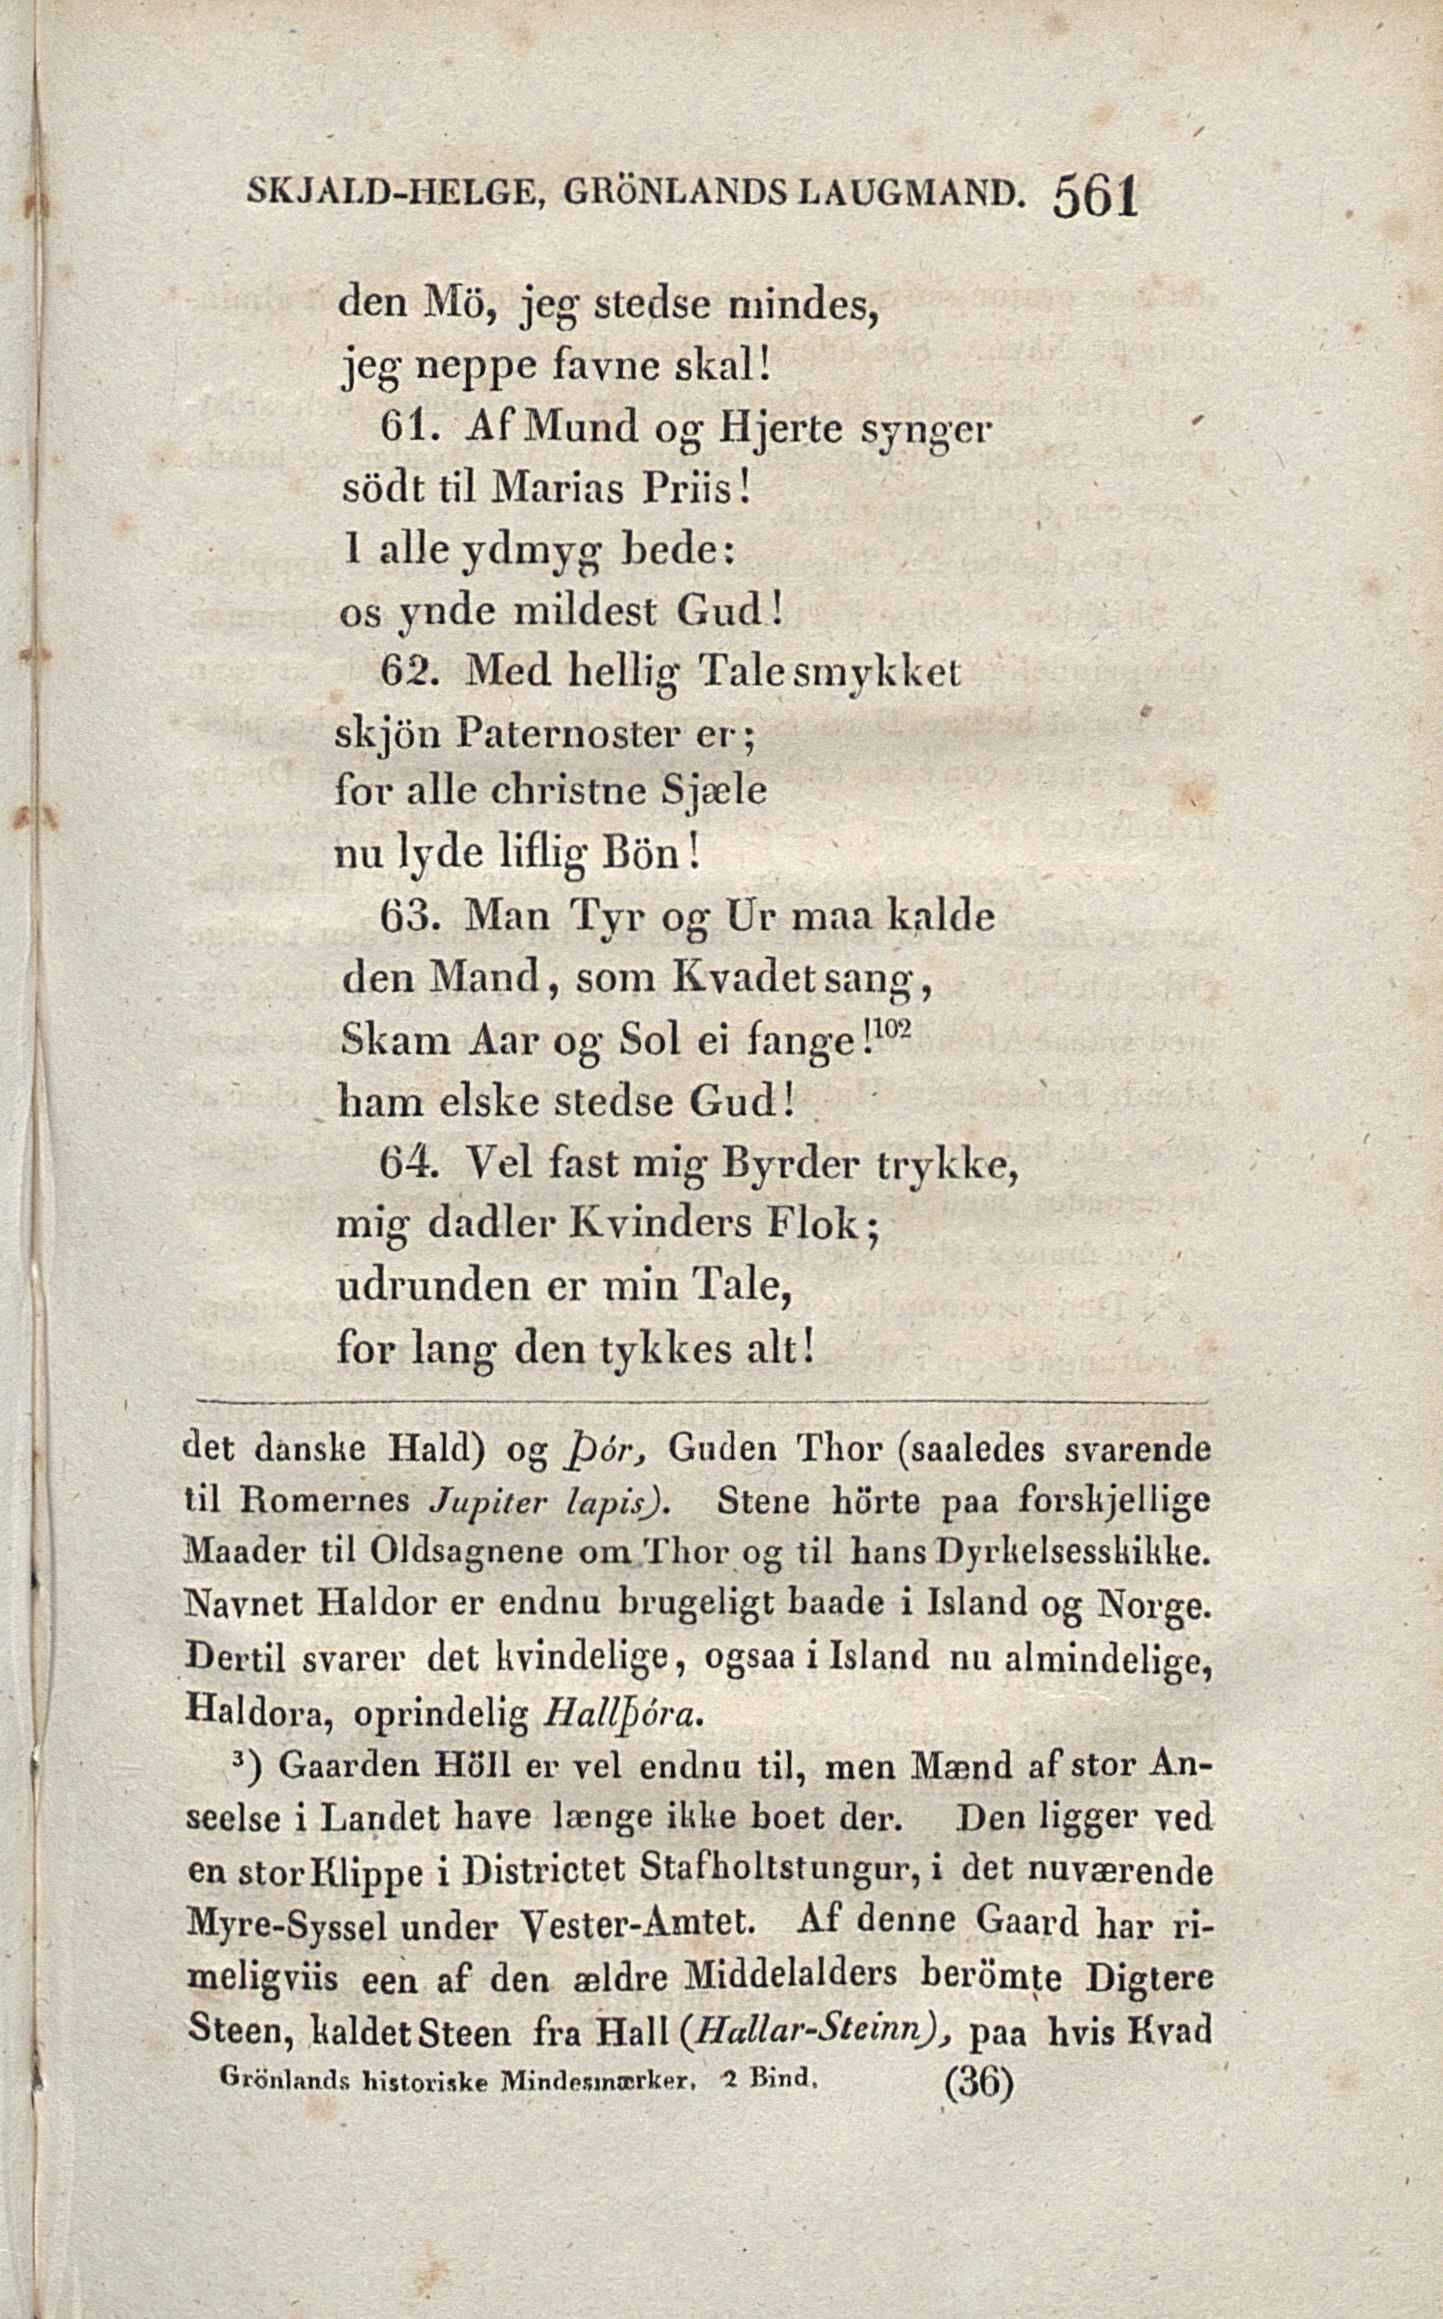 SKJALD-HELGE, GRÖNLANDS LAUGMAND. 561
den Mö, jeg stedse mindes,
jeg neppe favne skal!
61. Af Mund og Hjerte synger
södt til Marias Priis!
I alle ydmyg bede:
os ynde mildest Gud!
62. Med hellig Tale smykket
skjön Paternoster er;
for alle christne Sjæle
nu lyde liflig Bön!
63. Man Tyr og Ur maa kalde
den Mand, som Kvadet sang,
Skam Aar og Sol ei fange!102
ham elske stedse Gud!
64. Vel fast mig Byrder trykke,
mig dadler Kvinders Flok;
udrunden er min Tale,
for lang den tykkes alt!
det danske Hald) og Þór, Guden Thor (saaledes svarende
til Romernes Jupiter lapis). Stene hörte paa forskjellige
Maader til Oldsagnene om Thor og til hans Dyrkelsesskikke.
Navnet Haldor er endnu brugeligt baade i Island og Norge.
Dertil svarer det kvindelige, ogsaa i Island nu almindelige,
Haldora, oprindelig Hallþóra.
3) Gaarden Höll er vel endnu til, men Mænd af stor An-
seelse i Landet have længe ikke boet der. Den ligger ved
en stor Klippe i Districtet Stafholtstungur, i det nuværende
Myre-Syssel under Vester-Amtet. Af denne Gaard har ri-
meligviis een af den ældre Middelalders berömte Digtere
Steen, kaldet Steen fra Hall (Hallar-Steinn), paa hvis Kvad
Grönlands historiske Mindesmærker. 2 Bind. (36)